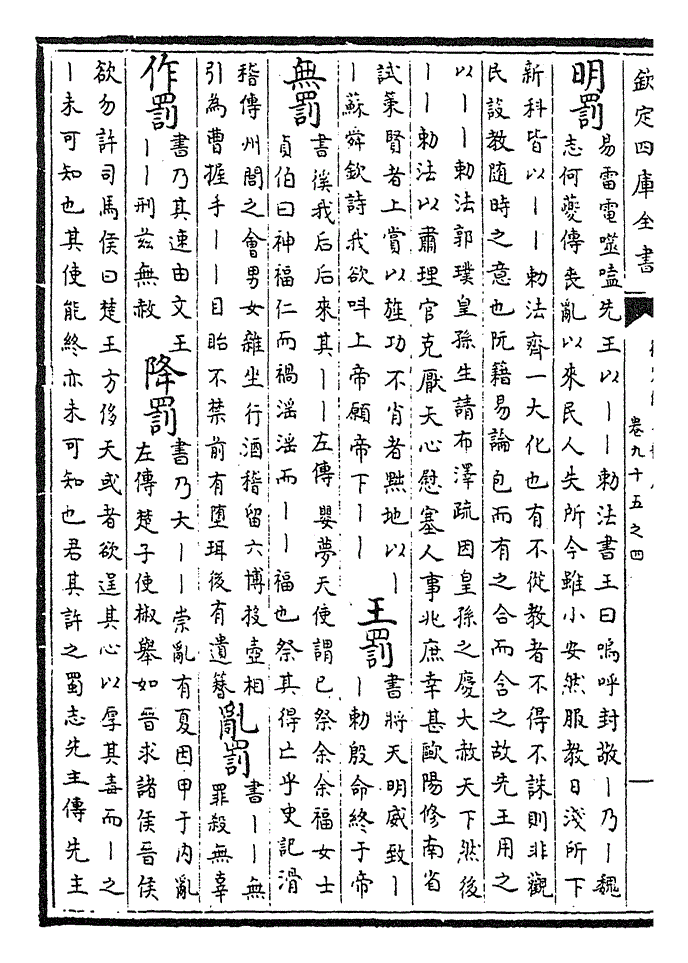 欽定四庫全書
卷九十五之四
明罰
易雷電噬嗑先王以丨丨勅法書王曰嗚呼封敬丨乃丨魏
志何夔傳喪亂以來民人失所今雖小安然服教日淺所下
新科皆以丨丨勅法齊一大化也有不從教者不得不誅則非觀
民設教隨時之意也阮籍易論包而有之合而含之故先王用之
以丨丨勅法郭璞皇孫生請布澤疏因皇孫之慶大赦天下然後
丨丨勅法以肅理官克厭天心慰塞人事兆庶幸甚歐陽修南省
試策賢者上賞以旌功不肖者黜地以丨
丨蘇舜欽詩我欲叫上帝願帝下丨丨
王罰
書將天明威致丨
丨勅殷命終于帝
無罰
書徯我后后來其丨丨左傳嬰夢天使謂已祭余余福女士
貞伯曰神福仁而禍淫淫而丨丨福也祭其得亡乎史記滑
稽傳州閭之會男女雜坐行酒稽留六博投壺相
引為曹握手丨丨目眙不禁前有墮珥後有遺簪
亂罰
書丨丨無
罪殺無辜
作罰
書乃其速由文王
丨丨刑兹無赦
降罰
書乃大丨丨崇亂有夏因甲于内亂
左傳楚子使椒舉如晉求諸侯晉侯
欲勿許司馬侯曰楚王方侈天或者欲逞其心以厚其毒而丨之
丨未可知也其使能終亦未可知也君其許之蜀志先主傳先主